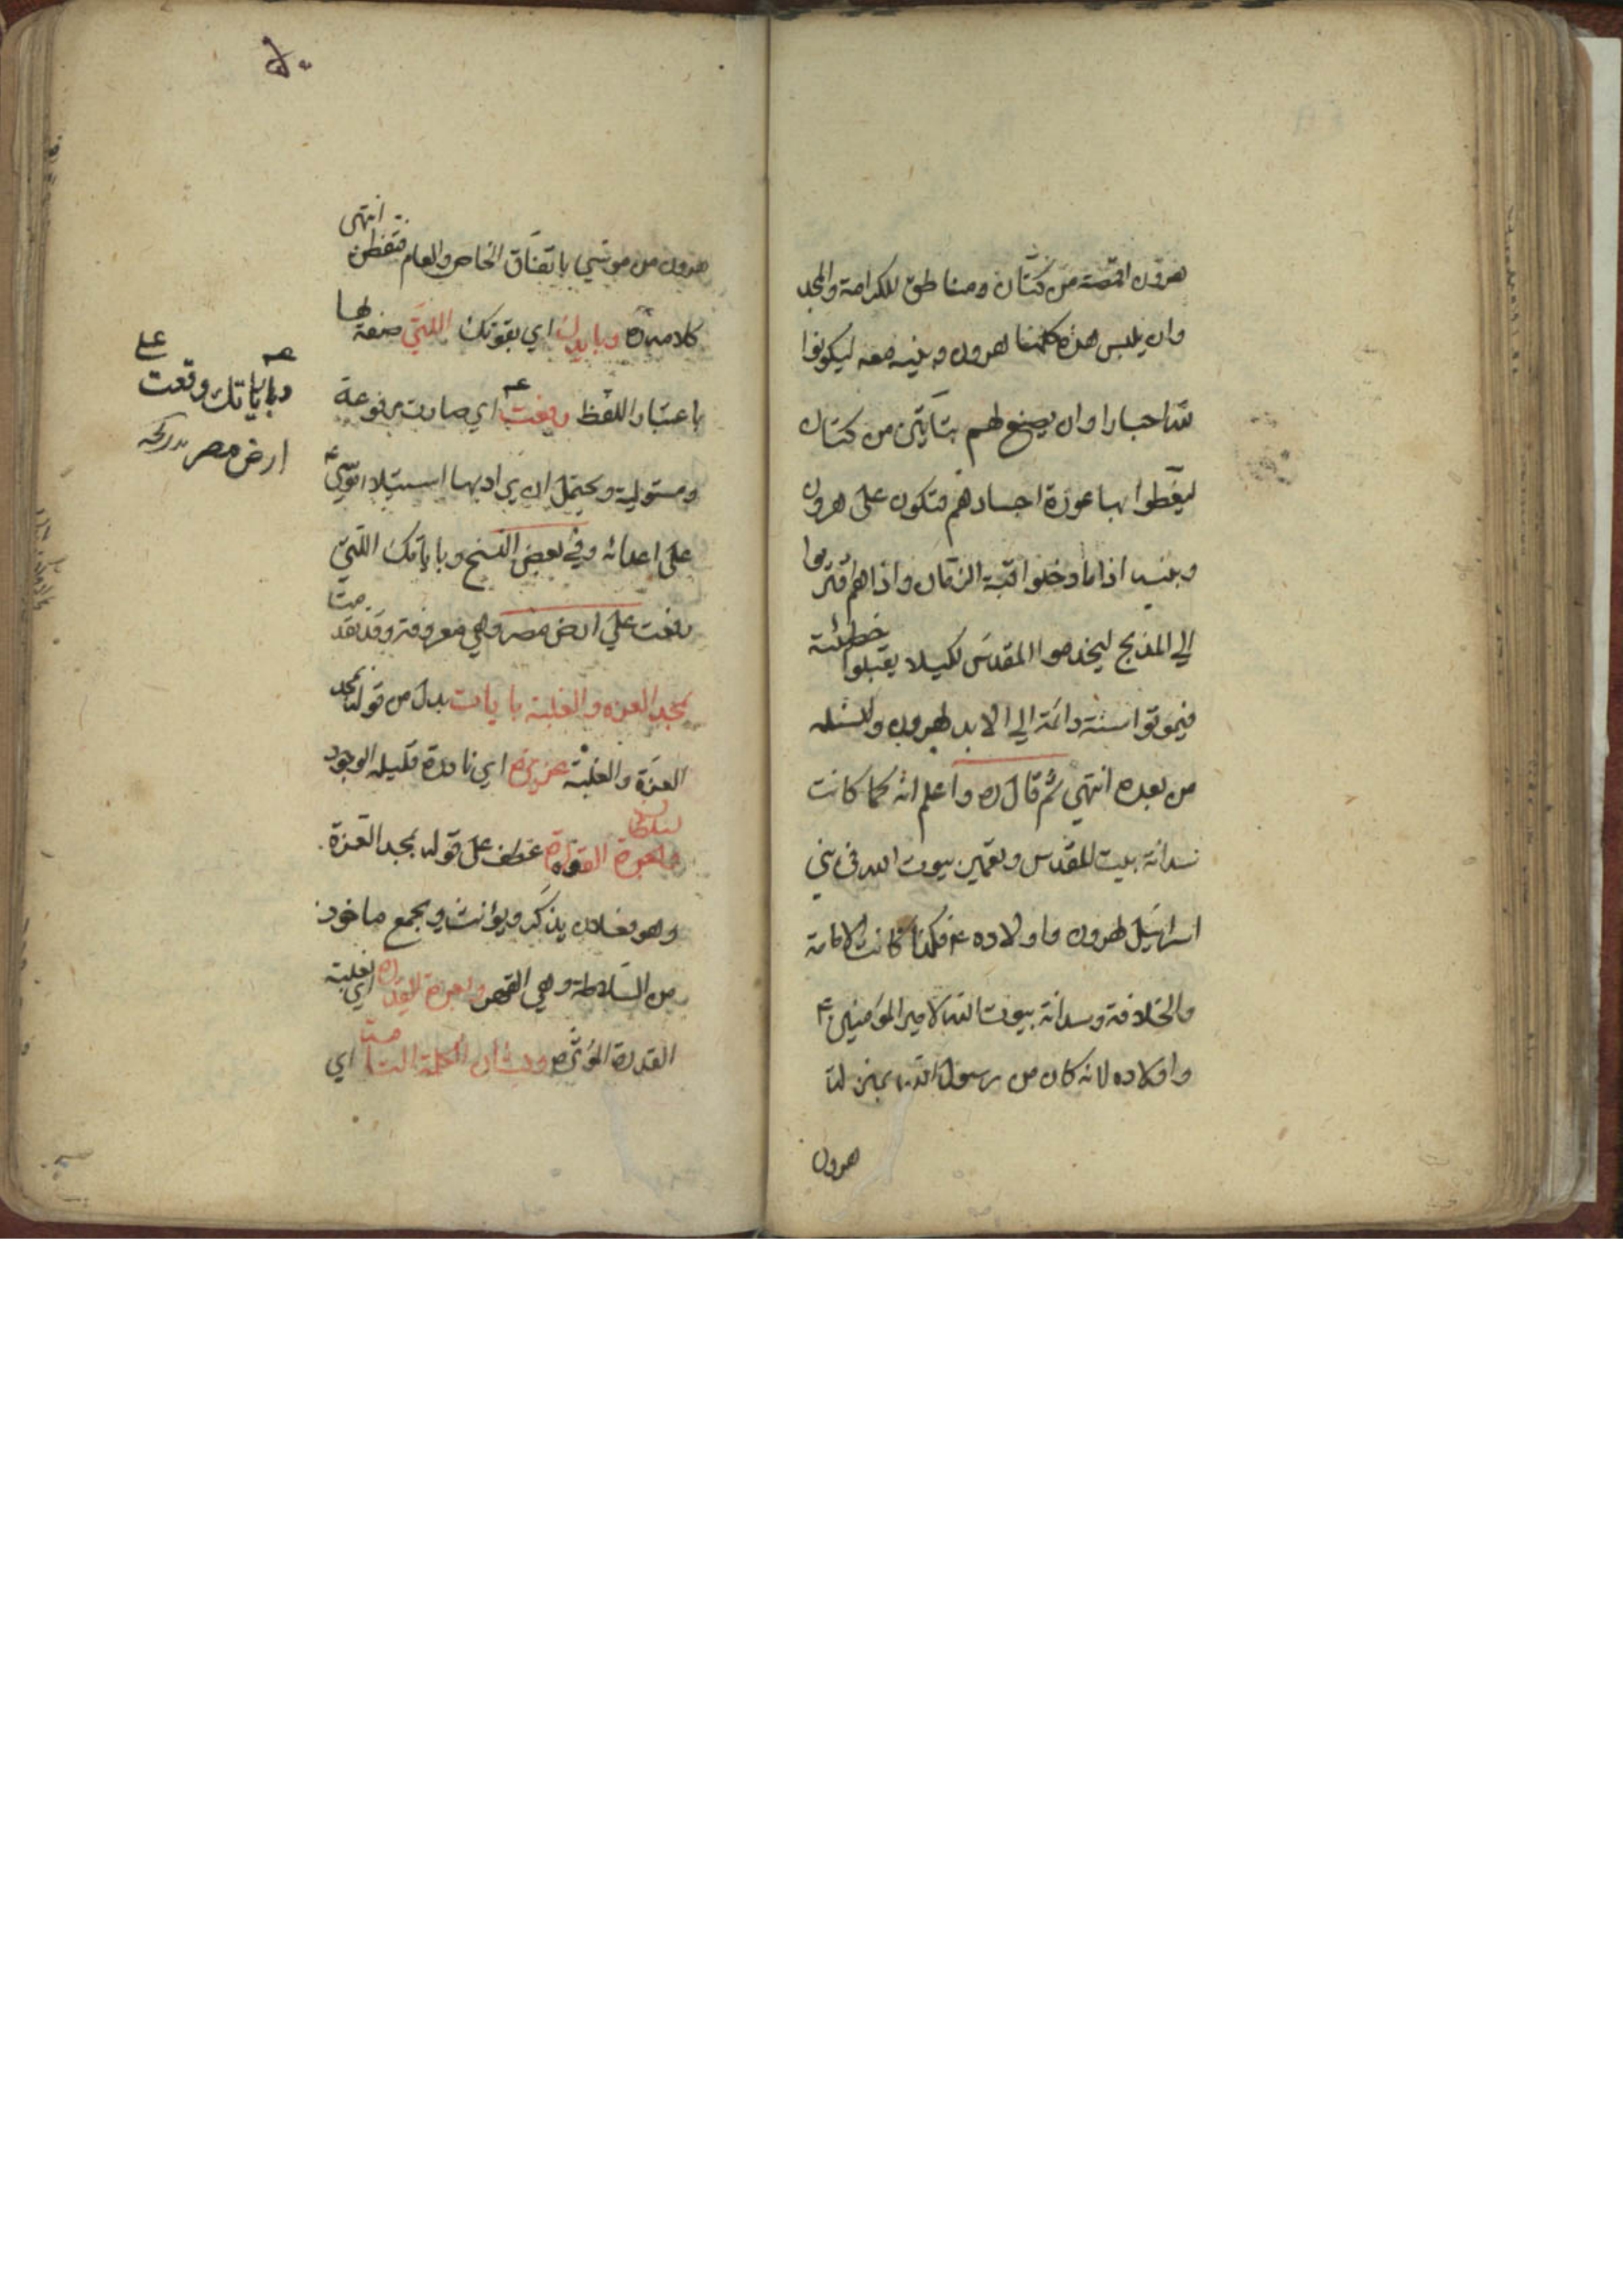 هرون اقمصة من كتّان ومناطق للكرامة والمجد
وان يلبس هذه كلها لهرون وبنيه معه ليكونوا
لله احبارا وان يصنع لهم من كتان
ليغطوا بها عورة اجسادهم فتكون على هرون
وبنيه اذا ما دخلوا قبة الزمان واذا هم اقتربوا
الى المذبح ليخدموا المقدس لكيلا يقبلوا خطيئة
فيموتوا سنة دائمة الى الابد لهرون ولنسله
من بعده انتهى ثم قال ره واعلم انه كما كانت
سدانة بيت المقدس وتعمير بيوت الله في بني
اسرائيل لهرون واولاده ع فكذا كانت الامامة
والخلافة وسدانة بيوت الله لامير المؤمنين ع
واولاده لانه كان من رسول الله بمنزلة
هرون
هرون من موسى باتفاق الخاص والعام انتهى فتفطن
كلامه ره وبايدك اي بقوتك اللتي صفة لها
باعتبار اللفظ وقعت اي صارت مرفوعة
ومستولية ويحتمل ان يراد بها استيلا موسى ع
على اعدائه وفي بعض النسخ وباياتك اللتي
وقعت على ارض مصر وهي معروفة وقد تقدمت
بمجد العزه والغلبة بايات بدل من قوله بمجد
العزة والغلبة عزيزة اي نادرة قليله الوجود
وبسلطان القوة عطف على قوله بمجد العزة
وهو فعلان يذكر ويؤنث ويجمع ماخوذ
من السلاطة وهي القهر وبعزة القدرة اي بغلبة
القدرة المؤثرة وبشأن الكلمة التامة اي
وباياتك وقعت على
ارض مصر